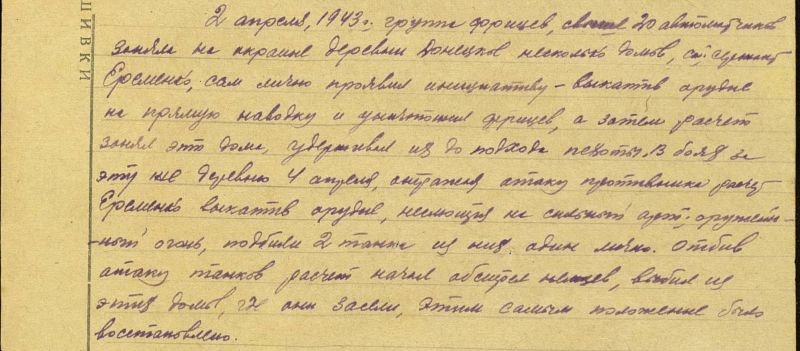 шивки
2 апреля, 1943г. группа фрицев, свыше 20 автоматчиков
заняла на окраине деревни Донецков несколько домов, ст. сержант
Еременко, сам лично проявил инициативу – выкатив орудие
на прямую наводку и уничтожил фрицев, а затем расчет
занял эти дома, удерживал их до подхода пехоты. В боях за
эту же деревню 4 апреля, отражая атаку противника расчет
Еременко выкатив орудие, несмотря на сильный арт. оружей-
-ный огонь, подбили 2 танка из них один лично. Отбив
атаку танков расчет начал обстрел немцев, выбил из
этих домов, где они засели, этим самым положение было
восстановлено.